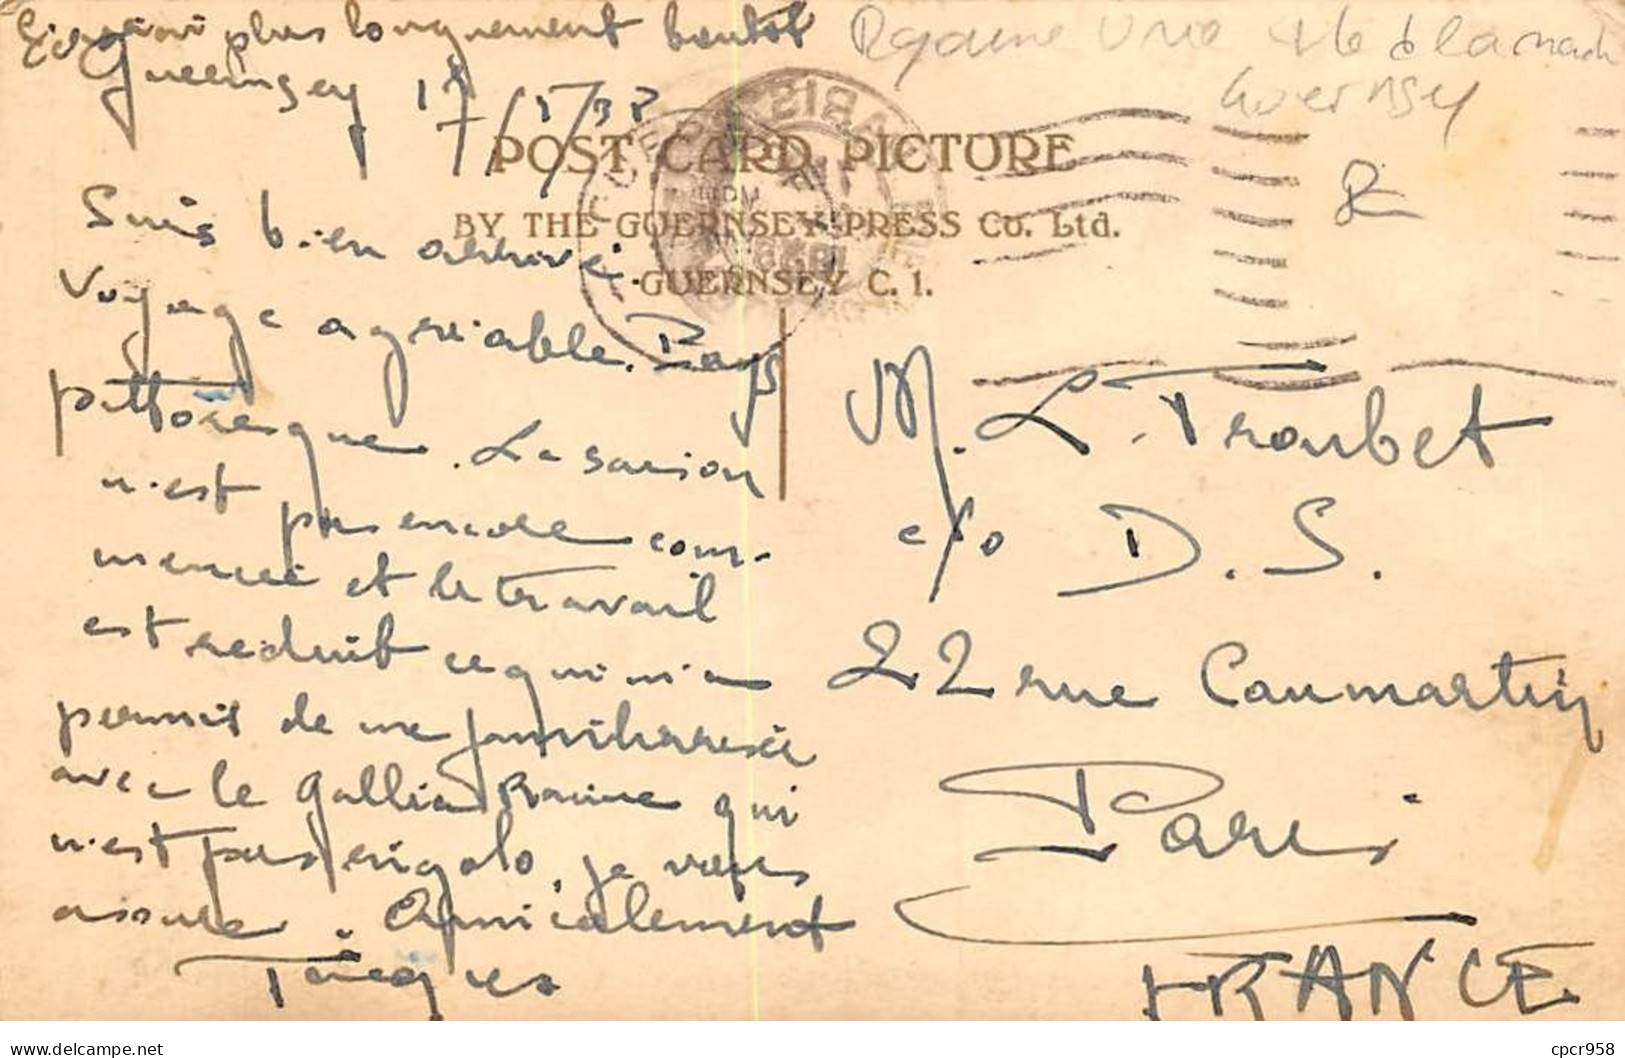 Ecrirai plus longuement bientôt
Guernsey 17/5/38
Suis bien arrivé.
Voyage agréable. Pays
pittoresque. La saison
n'est pas encore com-
mencée et le travail
est réduit ce qui m'a
permis de me familiariser
avec le Gallia Racine qui
n'est pas rigolo, je vous
assure. Amicalement
Jacques
Royaume Uni Ile de la manche
Guernsey
POST CARD PICTURE
BY THE GUERNSEY PRESS Co. Ltd.
GUERNSEY C. I.
M. L. Troubet
c/o D. S.
22 rue Caumartin
Paris
FRANCE
cpcr958